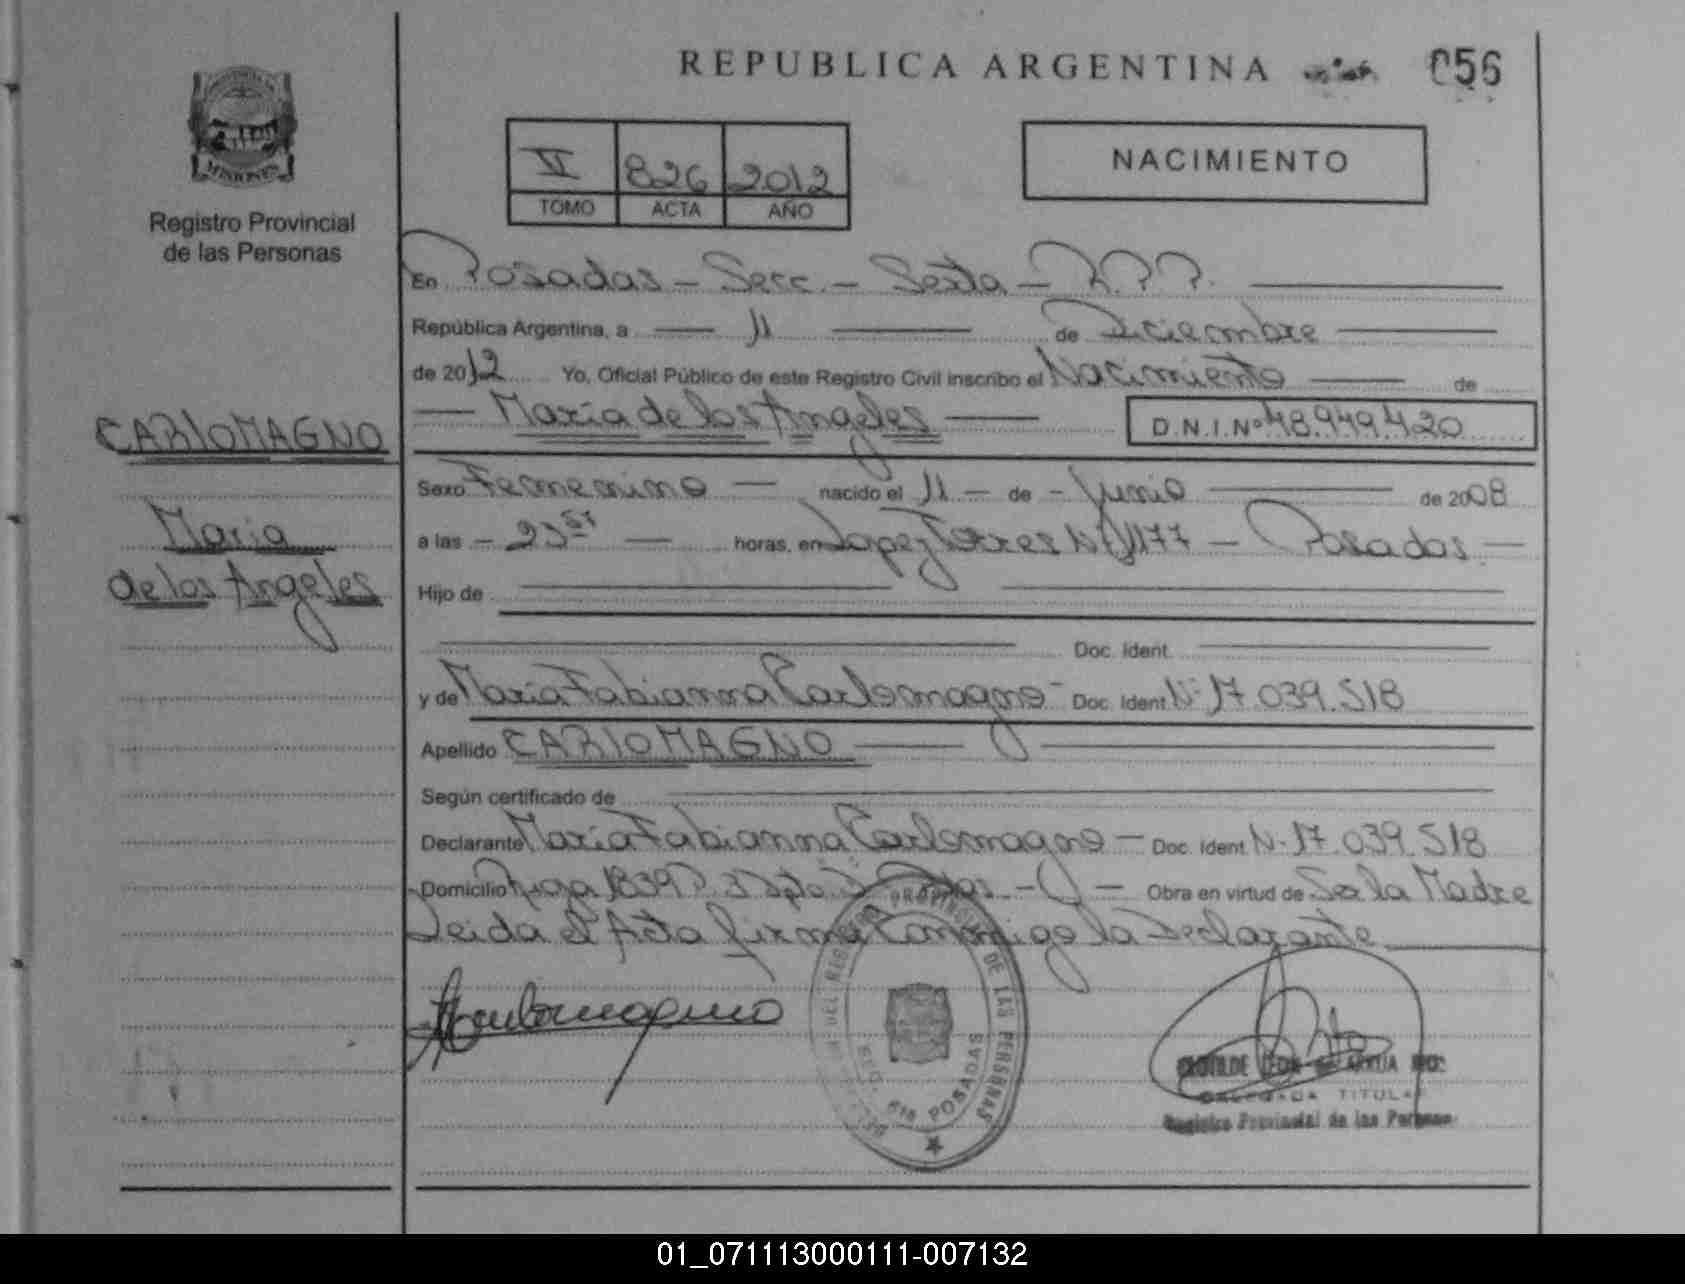 REPUBLICA ARGENTINA
056
MISIONES
Registro Provincial
de las Personas
VI 826 2012
TOMO ACTA AÑO
NACIMIENTO
En Posadas - Secc. - Sexta -
República Argentina, a 11 de Diciembre
de 2012 Yo, Oficial Público de este Registro Civil inscribo el Nacimiento de
Maria de los Angeles D.N.I. Nº 48.949.420
CARLOMAGNO
Maria
de los Angeles
Sexo Femenino nacido el 11 - de - Junio de 2008
a las - 23 horas, en Lopez Torres Nº 1177 - Posadas
Hijo de
Doc. Ident.
y de Maria Fabianna Carlomagno - Doc. Ident. Nº 17.039.518
Apellido CARLOMAGNO
Según certificado de
Declarante Maria Fabianna Carlomagno - Doc. Ident. Nº 17.039.518
Domicilio 1839 Obra en virtud de Ser la Madre
Leida el Acta firma Conmigo la Declarante
PROVINCIAL DE LAS PERSONAS
POSADAS
TITULAR
Registro Provincial de las Personas
01_071113000111-007132